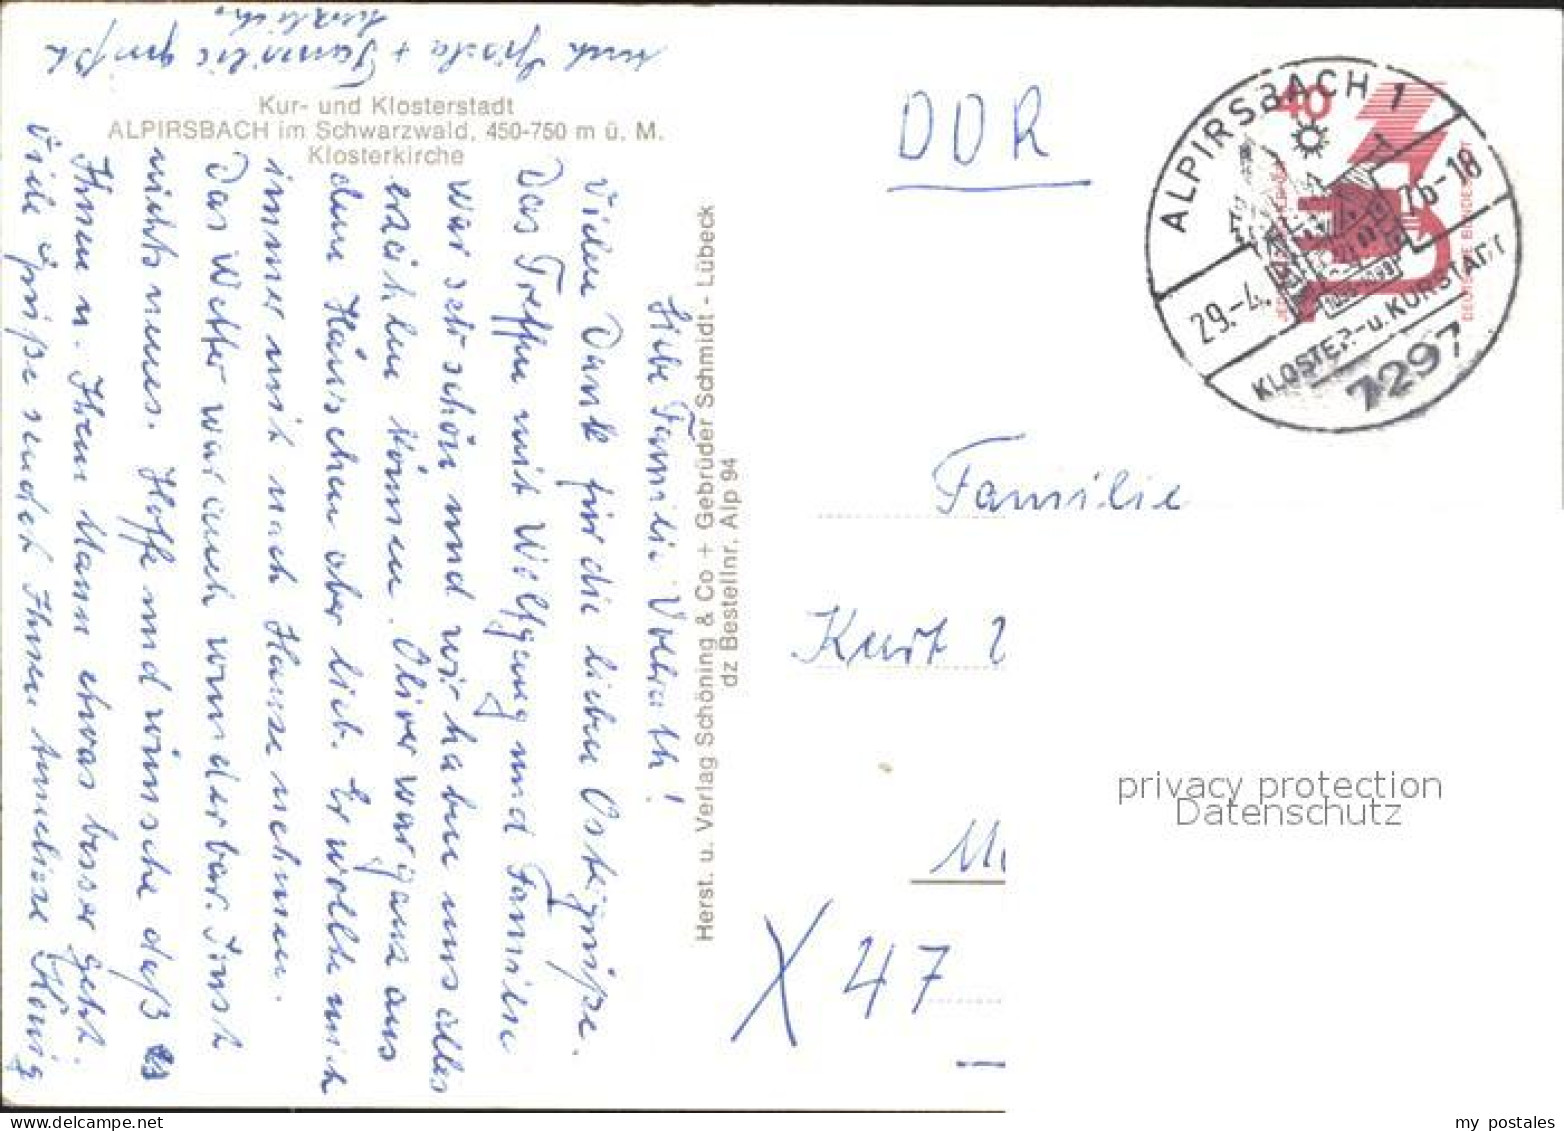 Kur- und Klosterstadt
ALPIRSBACH im Schwarzwald, 450-750 m ü. M.
Klosterkirche
Liebe Familie Vollrath!
Vielen Dank für die lieben Ostergrüße.
Das Treffen mit Wolfgang und Familie
war sehr schön und wir haben uns alles
erzählen können. Oliver war ganz aus
dem Häuschen aber lieb. Er wollte mich
immer mit nach Hause nehmen.
Das Wetter war auch wunderbar. Sonst
nichts neues. Hoffe und wünsche daß es
Ihnen u. Ihrem Mann etwas besser geht.
Viele Grüße sendet Ihnen Anneliese König
auch Gisela + Familie grüßt
herzlich.
Herst. u. Verlag Schöning & Co + Gebrüder Schmidt - Lübeck
dz Bestellnr. Alp 94
DDR
40
DEUTSCHE BUNDESPOST
ALPIRSBACH 1
29.-4.76-18
KLOSTER- u. KURSTADT
7297
Familie
Kurt
X 47
privacy protection
Datenschutz
my postales